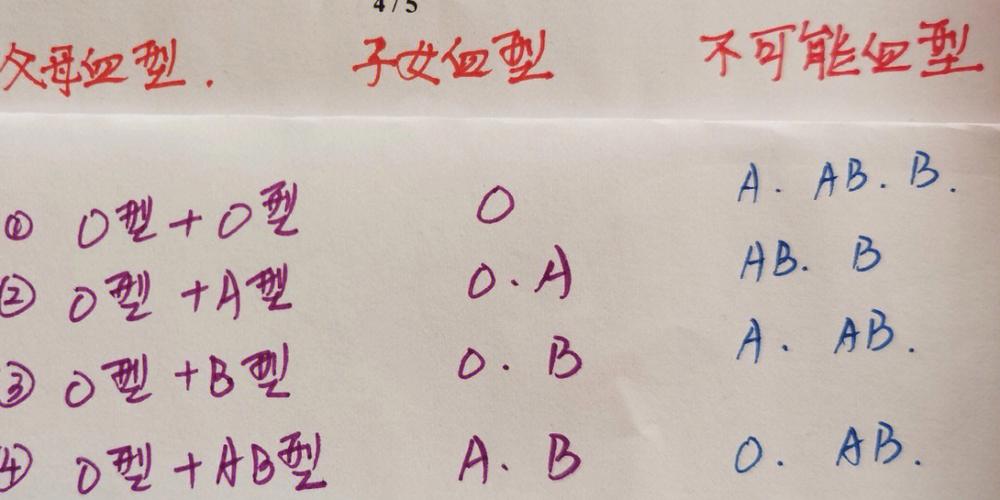 4/5
父母血型. 子女血型 不可能血型
① O型+O型 O A. AB. B.
② O型+A型 O. A AB. B
③ O型+B型 O. B A. AB.
④ O型+AB型 A. B O. AB.